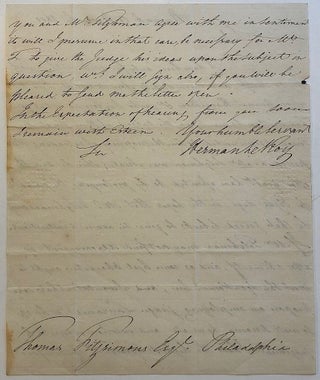 you and Mr. Fitzsimons agree with me in sentiment
it will I presume in that case, be necessary for Mr.
F. to give the Judge his ideas upon the subject in
question wh. I will sign also, if you will be
pleased to send me the letter open.
In the Expectation of hearing from you soon
I remain with Esteem Your humble Servant
Sir Herman LeRoy
Thomas Fitzsimons Esqr. Philadelphia